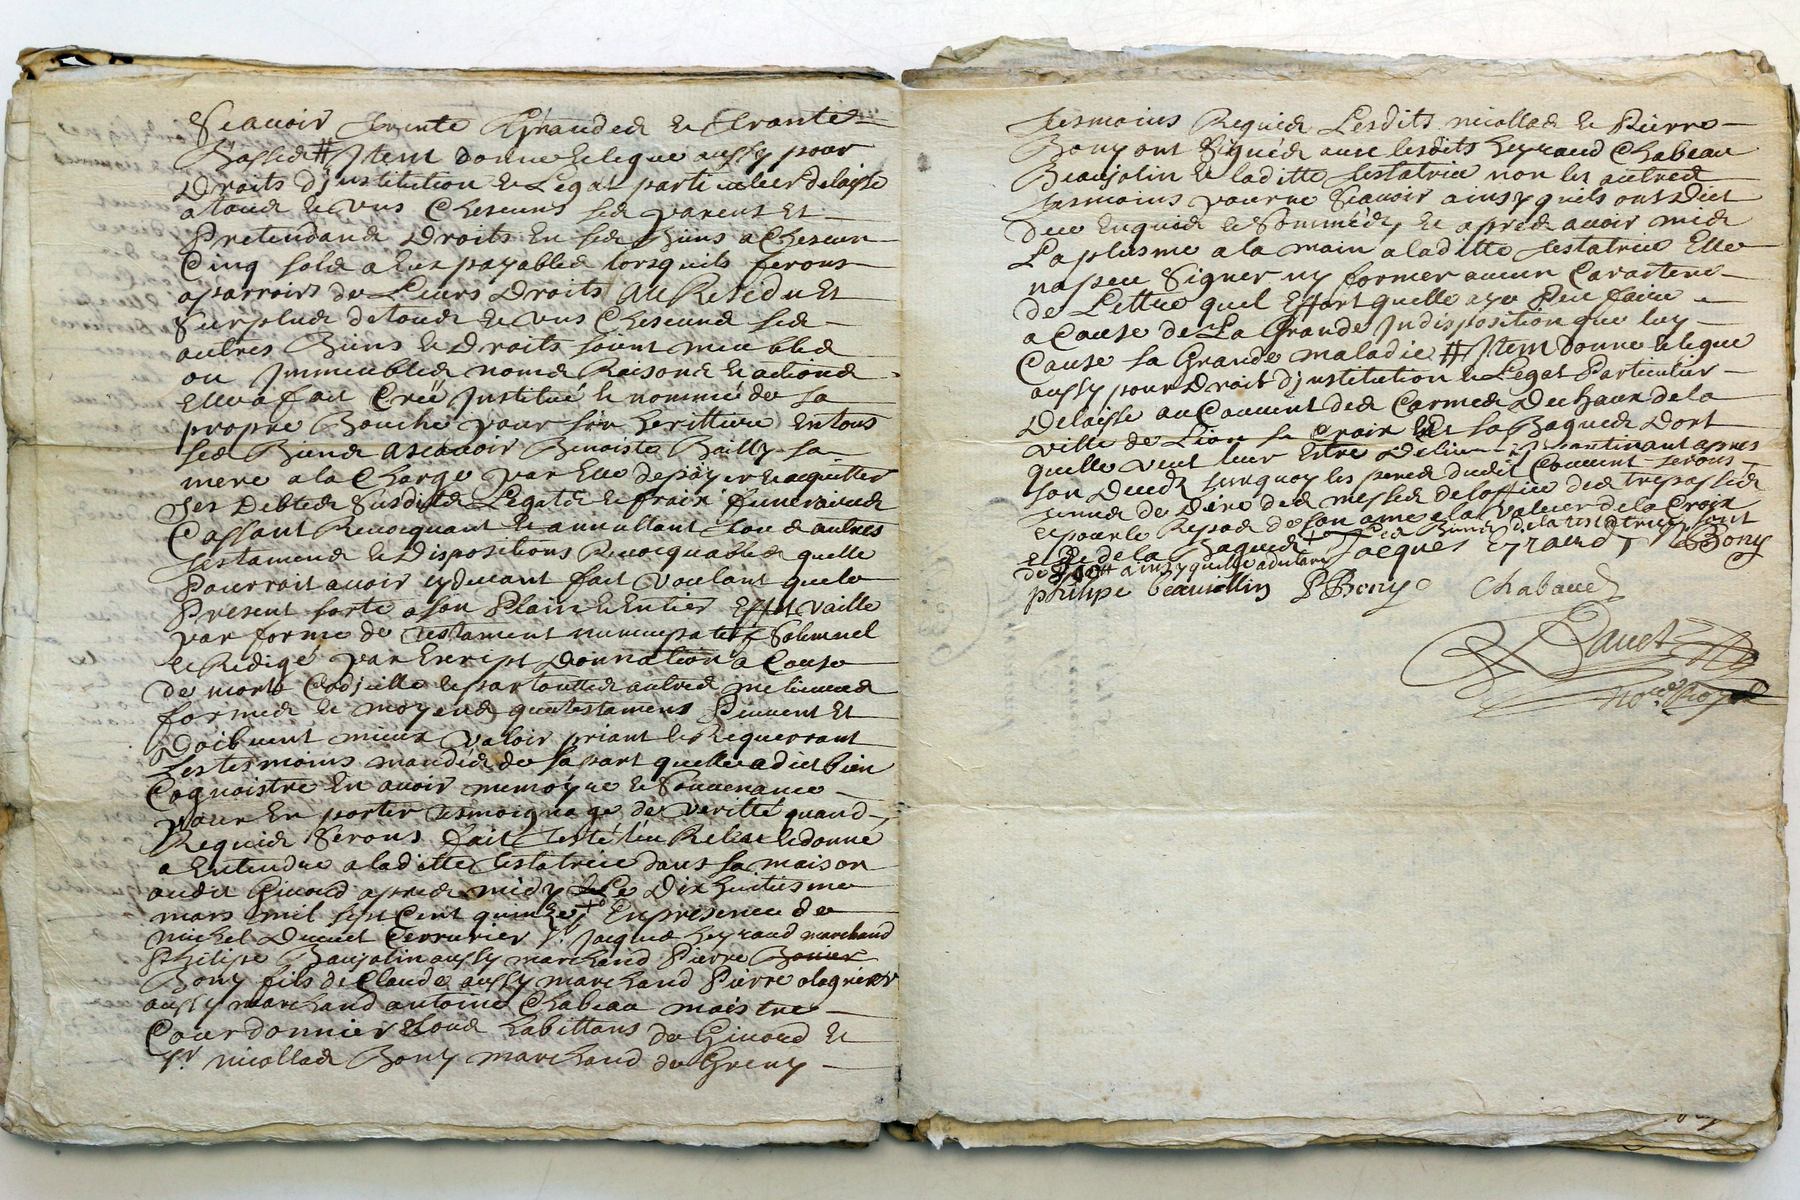 Scavoir trente Grandes et trante
Basses # Item donne et legue aussy pour
Droits d'jnstitution et Legat particulier delaisse
a tous et uns Chescuns ses parens et
Pretendans Droits En ses Biens a Chescun
Cinq sols a Eux payables lorsquils ferons
aparroirs de Leurs Droits Au Residu Et
Surplus de tous et uns Chescuns ses
autres Biens et Droits soint meubles
ou Jmmeubles noms Raisons et actions
Elle a fait Creé Jnstitué et nommé de sa
propre Bouche pour son herittiere En tous
ses Biens ascavoir Benoiste Bailly sa
mere a la Charge par Elle depayer et acquitter
ses Debtes Susdits Legats et fraix funeraires
Cassant Revocquant et annullant tous autres
testamens et Dispositions Revocquables quelle
Pourroit avoir cydevant fait voulant que le
Present sorte a son Plain et Entier Effet vaille
par forme de testament nuncupatif Solemnel
et Redigé par Escript Donnation a Cause
de mort Codjcille et par touttes autres meilieures
formes et moyens que testamens Peuvent Et
Doibvent mieux valoir priant et Requerrant
Les tesmoins mandés de sa part quelle a dict bien
Cognoistre En avoir memoyre et Souvenance
pour En porter tesmoignage de veritté quand
Requis Serons fait Testé leu Releu et donné
a Entendre a laditte testatrice dans sa maison
audit Givord apres midy Le Dix huitiesme
mars mil sept Cent quinze En presence de
michel Ducret Cerrurier Sr. Jacques heyraud marchand
Philipe Baujolin aussy marchand Pierre
Bony fils de Claude aussy marchand Pierre olagnier
aussy marchand antoine Chabeau maistre
Courdonnier tous habittans du Givord et
Sr. nicollas Bony marchand de Greny
tesmoins Requis Lesdits nicollas et Pierre
Bony ont Signés avec lesdits heyraud Chabeau
Beaujolin et laditte testatrice non les autres
tesmoins pour ne Scavoir ainsy quils ont Dict
deue Enquis et Sommés, et apres avoir mis
La plusme a la main a laditte testatrice Elle
na peu Signer ny former aucun Caractere
de Lettre quel Effort quelle aye Peu faire
a Cause de La Grande Jndisposition que luy
Cause sa Grande maladie # Item donne et legue
aussy pour Droit d'jnstitution et Legat Particulier
Delaisse au Couvent des Carmes Dechaux de la
ville de Lion sa Croix et sa Bague Dort
quelle veut leur Estre apres
son Deces surquoy les peres dudit Couvent serons
tenus de Dire des messes de loffice des trepasses
et pour le Repos de son ame a la valeur de la Croix
de la Bague de la testatrice sont
Jacques Eyraud N Bony
ainsy quelle
philipe beaujollin P Bony Chabaud
no.re Royal